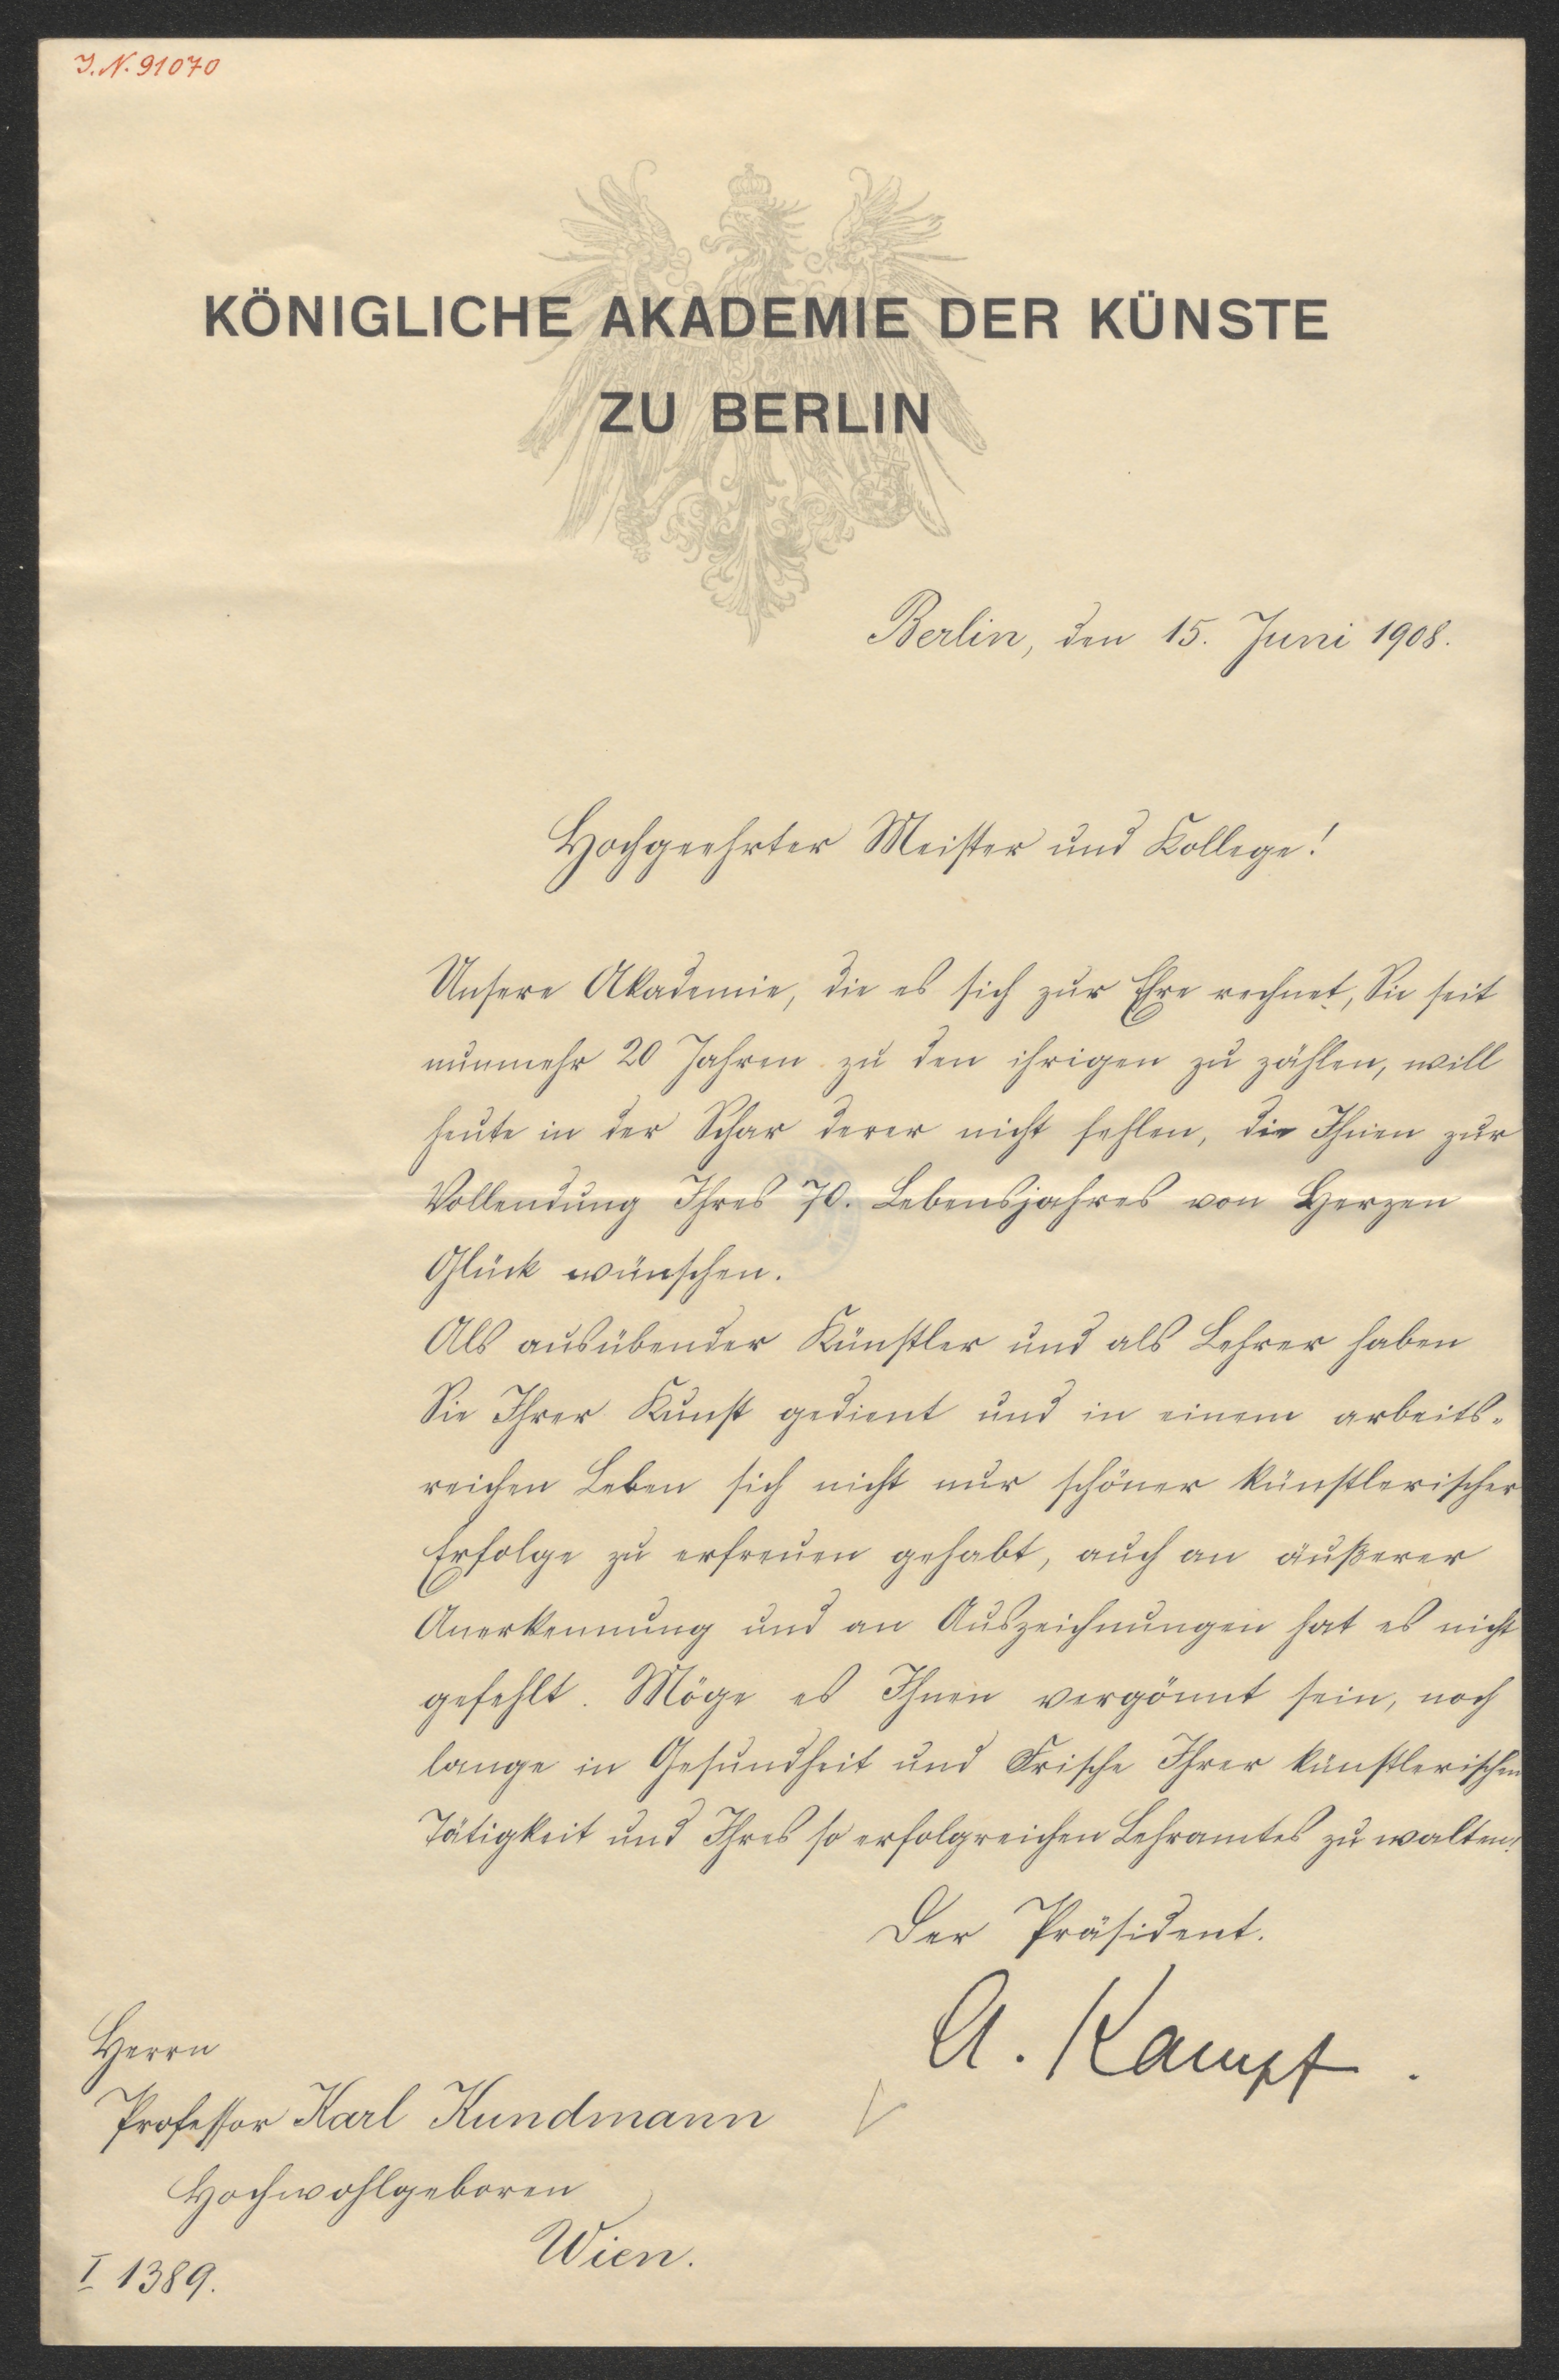 J. N. 91070
KÖNIGLICHE AKADEMIE DER KÜNSTE
ZU BERLIN
Berlin, den 15. Juni 1908.
Hochgeehrter Meister und Kollege!
Unsere Akademie, die es sich zur Ehre rechnet, Sie seit
nunmehr 20 Jahren zu den ihrigen zu zählen, will
heute in der Schar derer nicht fehlen, die Ihnen zur
Vollendung Ihres 70. Lebensjahres von Herzen
Glück wünschen.
Als ausübender Künstler und als Lehrer haben
Sie Ihrer Kunst gedient und in einem arbeits-
reichen Leben sich nicht nur schöner künstlerischer
Erfolge zu erfreuen gehabt, auch an äußerer
Anerkennung und an Auszeichnungen hat es nicht
gefehlt. Möge es Ihnen vergönnt sein, noch
lange in Gesundheit und Frische Ihrer künstlerischen
Tätigkeit und Ihres so erfolgreichen Lehramtes zu walten!
Der Präsident.
A. Kampf.
Herrn
Professor Karl Kundmann
Hochwohlgeboren
Wien.
I 1389.